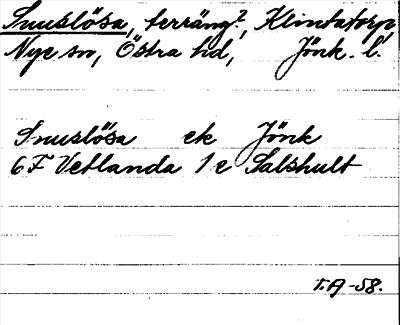 Snuslösa, terräng?, Klintatorp,
Nye sn, Östra hd, Jönk. l.
Snuslösa ek Jönk
6F Vetlanda 1e Salshult
T.A-58.